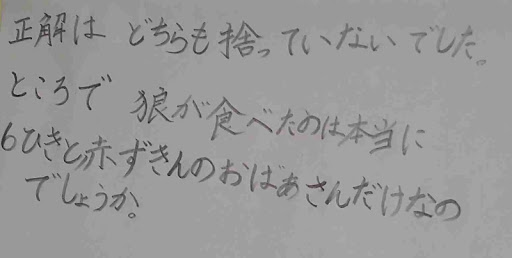 正解は どちらも捨っていないでした。
ところで 狼が食べたのは本当に
6ひきと赤ずきんのおばあさんだけなの
でしょうか。